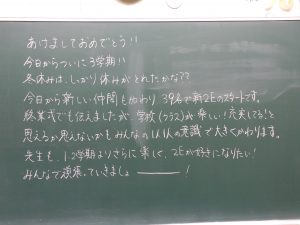 あけましておめでとう!!
今日からついに3学期!!
冬休みは、しっかり休みがとれたかな??
今日から新しい仲間も加わり 39名で新2Eのスタートです。
終業式でも伝えましたが、学校(クラス)が楽しい!充実してる!と
思えるか思えないかもみんなの1人1人の意識で大きくかわります。
先生も、1,2学期よりさらに楽しく、2Eが好きになりたい!
みんなで頑張っていきましょ———!